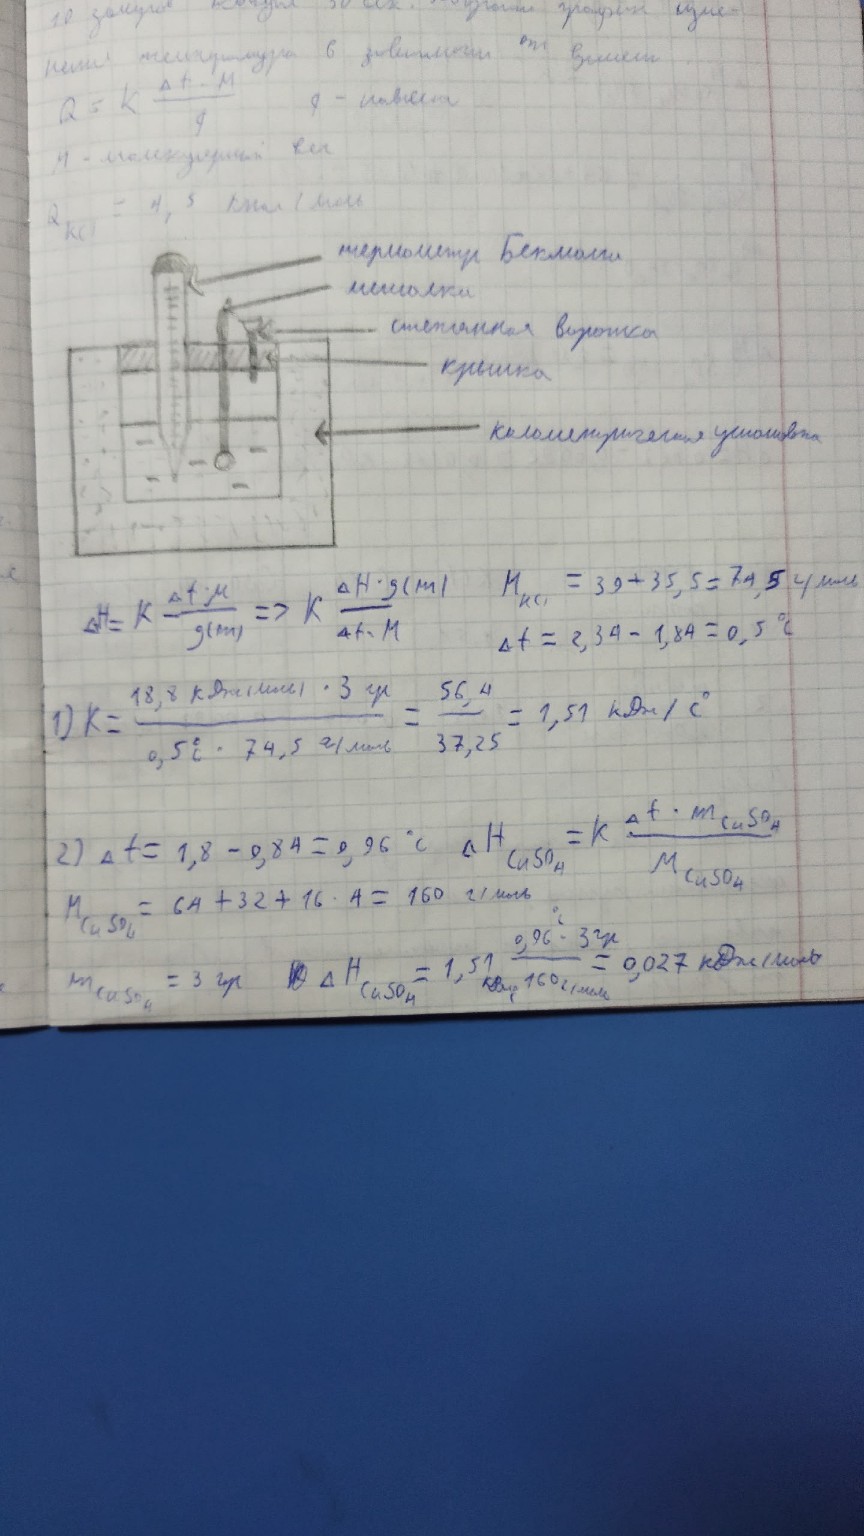 10 замеров каждые 30 сек. график изме-
нения температура в зависимости от времени
Q = K Δt · M / g g - навеска
M - молекулярный вес
Q KCl = 4,5 ккал/моль
термометр Бекмана
мешалка
стеклянная воронка
крышка
калометрическая установка
ΔH = K Δt·M / g(m) => K ΔH·g(m) / Δt·M M KCl = 39+35,5=74,5 г/моль
Δt = 2,34 - 1,84 = 0,5 °C
1) K = 18,8 кДж/моль · 3 гр / 0,5°C · 74,5 г/моль = 56,4 / 37,25 = 1,51 кДж/C°
2) Δt = 1,8 - 0,84 = 0,96 °C ΔH CuSO4 = K Δt · m CuSO4 / M CuSO4
M CuSO4 = 64+32+16·4 = 160 г/моль
m CuSO4 = 3 гр ΔH CuSO4 = 1,51 0,96 °C · 3 гр / 160 г/моль = 0,027 кДж/моль